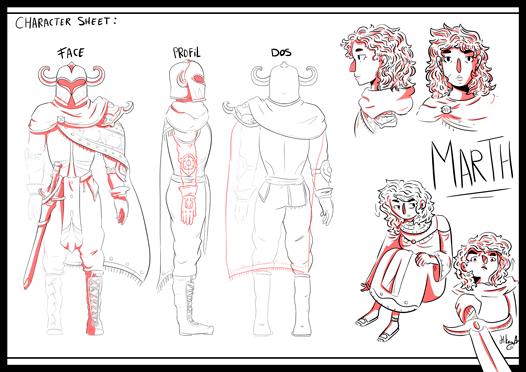 CHARACTER SHEET :
FACE PROFIL DOS
MARTH